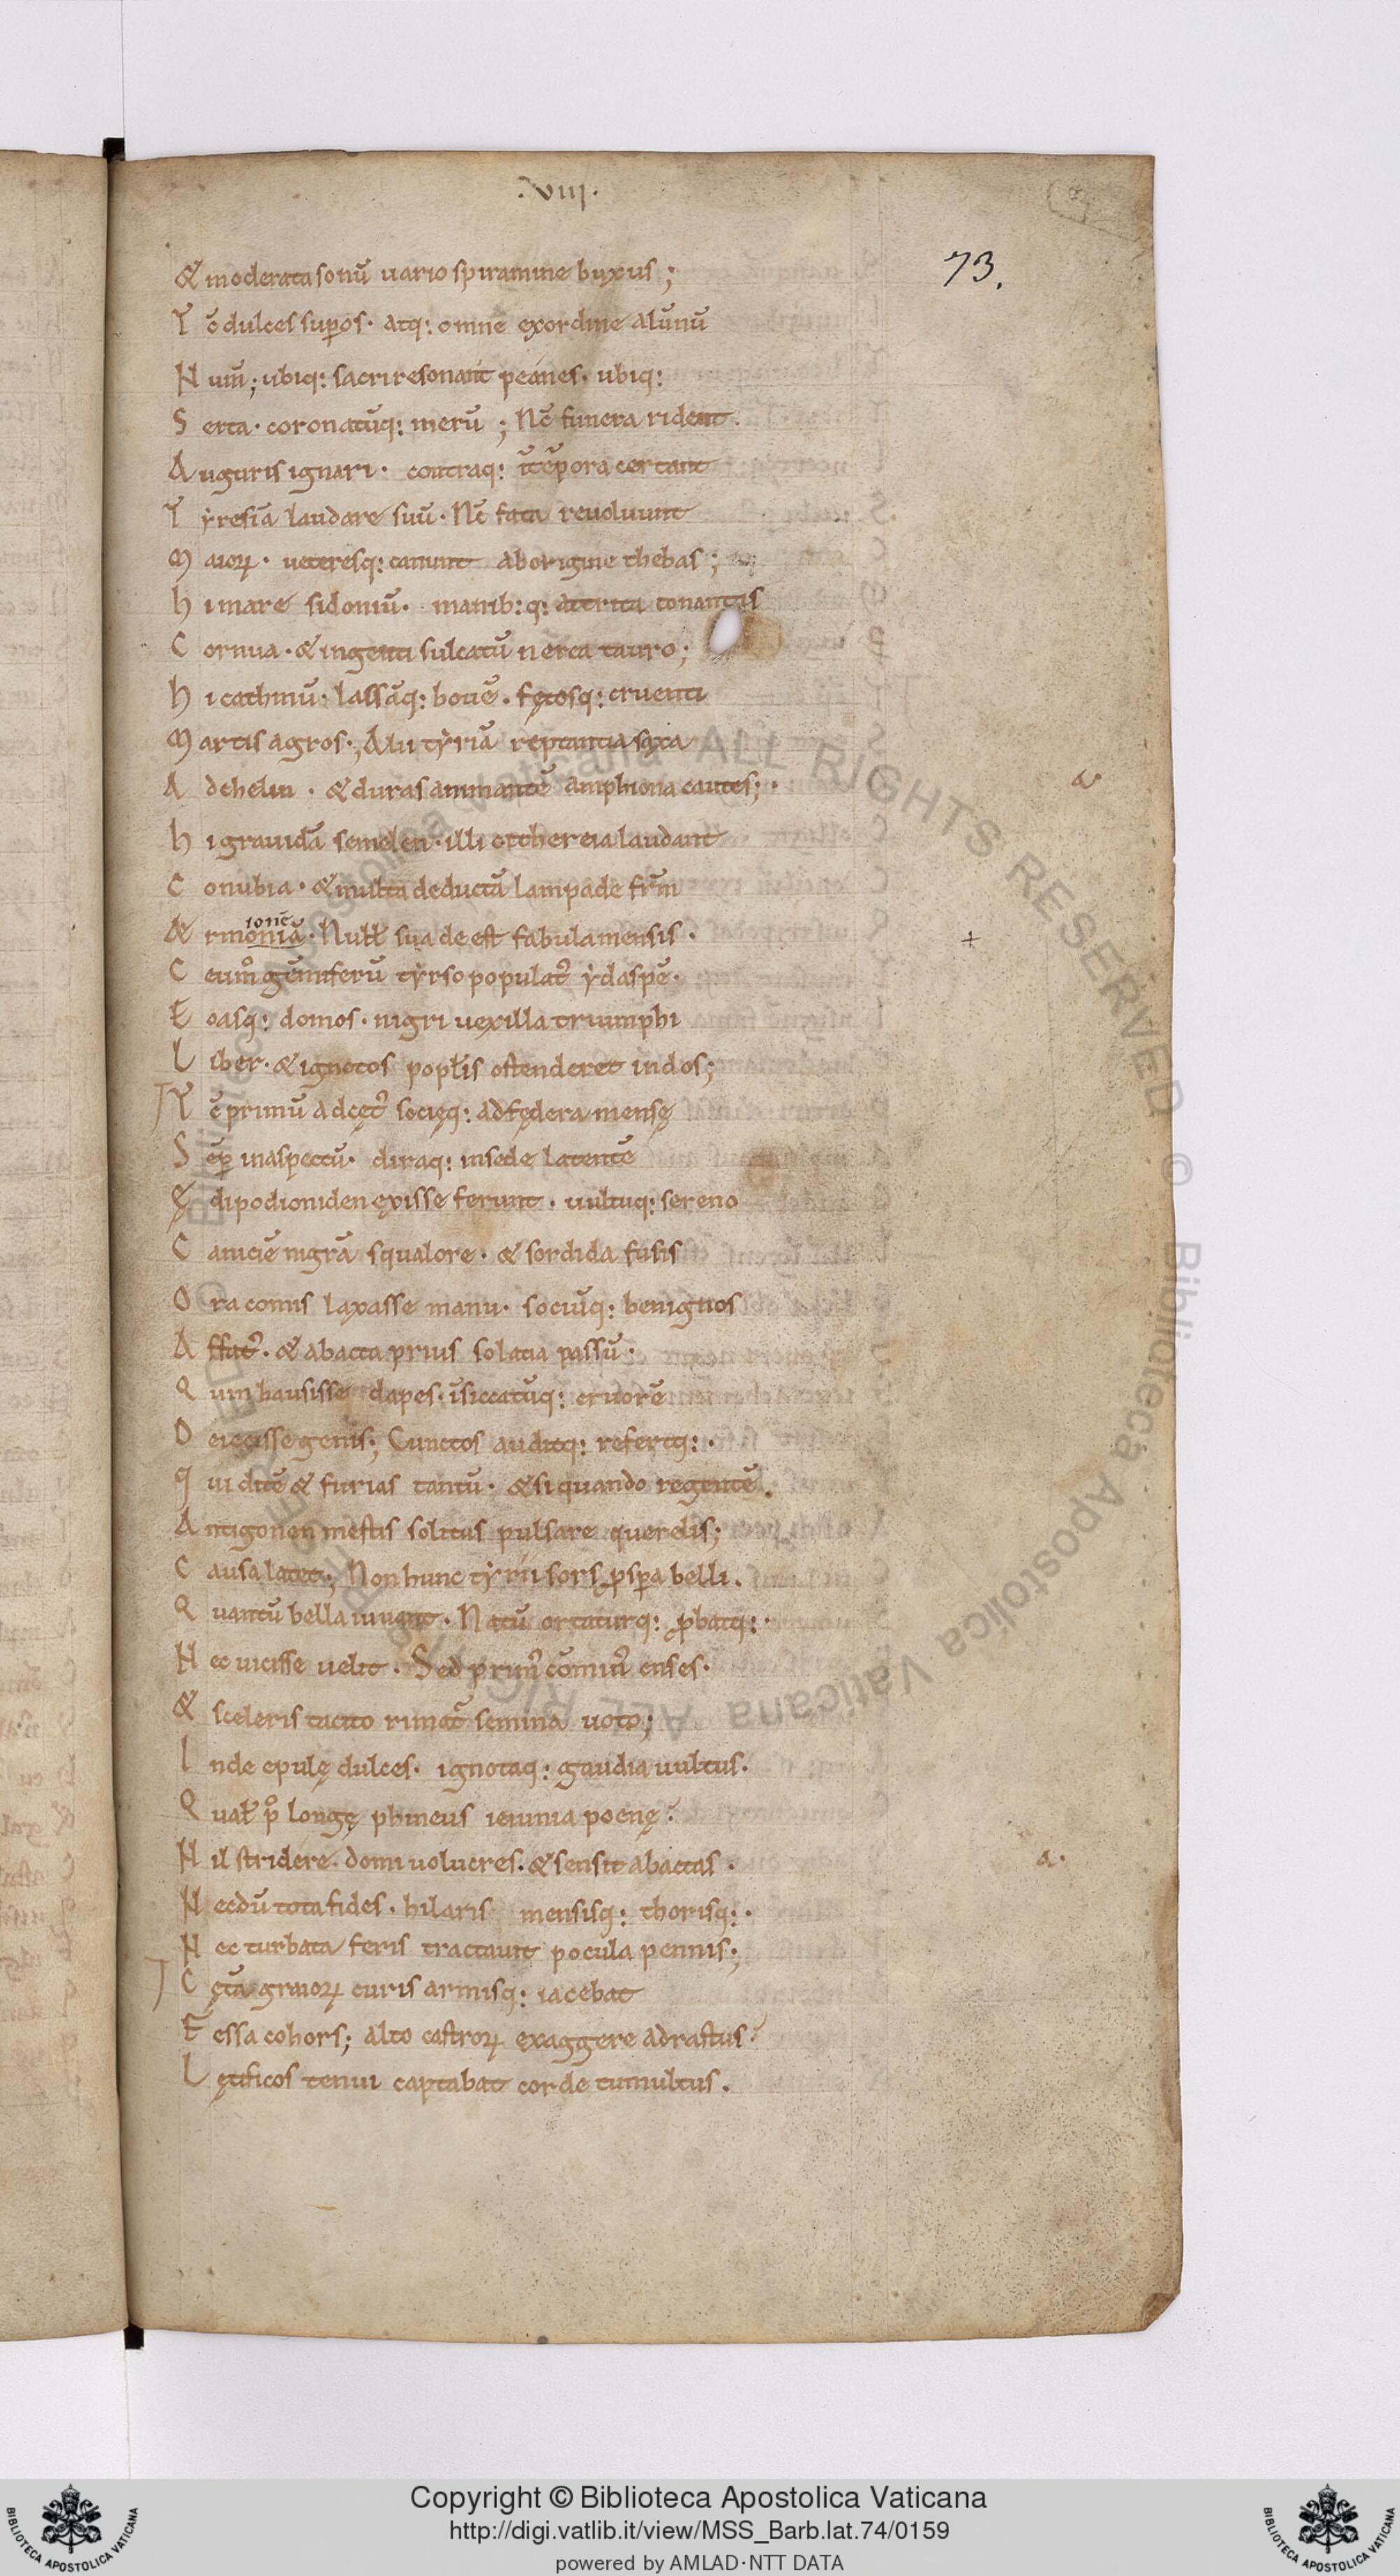 .VIII.
73.
& moderata sonū uario spiramine buxus ;
T c̄ dulces sup̄os · atq: omne ex ordine alūnū
N um̄ ; ubiq: sacri resonant peanes · ubiq:
S erta · coronatūq: merū ; Nc̄ funera rident .
A uguris ignari · contraq: ītēpora certant
T ẏresiā laudare suū · Nc̄ fata reuoluunt
M aioꝝ · ueteresq: canunt ab origine thebas ;
h i mare sidoniū · manib:q: attrita tonantis
C ornua · & ingenti sulcatū nerea tauro ;
h i cathmū · lassāq: bouē · fętosq: cruenti
M artis agros ; Alii tẏriā reptantia saxa
A d chelin · & duras animantē amphiona cautes ; ·
a·
h i grauidā semelen · illi cithereia laudant
C onubia · & multa deductā lampade frm̄
ionē
Æ rmoniā · Null̄ sua deest fabula mensis ·
+
C eum̊ gēmiferū tẏrso populat᷒ ẏdaspē ·
E oasq: domos · nigri uexilla triumphi
L iber · & ignotos popl̄is ostenderet indos ;
T c̄ primū adcęt᷒ socięq: ad fędera mensę
S ēp̄ inaspectū · diraq: in sede latentē
Ę dipodioniden exisse ferunt · uultuq: sereno
C aniciē nigrā squalore · & sordida fusis
O ra comis laxasse manu · sociūq: benignos
A ffat᷒ · & abacta prius solatia passū ·
Q uin hausisse dapes · īsiccatūq: cruorē
D eiecisse genis ; Cunctos auditq: refertq: ·
q ui ditē & furias tantū · & si quando regentē .
A ntigonen mestis solitus pulsare querelis ;
C ausa latet ; Non hunc tẏrii sors ꝓsp̄a belli .
Q uantū bella iuuant · Natū ortaturq: ꝓbatq: ·
N ec uicisse uelit · Sed prim᷒ cōmin᷒ enses ·
& sceleris tacito rimat᷒ semina uoto ;
I nde epulę dulces · ignotaq: gaudia uultus ·
Q ual̄ p̊ longę phineus ieiunia poenę ·
N il stridere · domi uolucres · & sensit abactas .
a·
N ecdū tota fides · hilaris mensisq: thorisq: ·
N ec turbata feris tractauit pocula pennis ;
C ęt̄a graioꝝ curis armisq: iacebat
F essa cohors ; alto castroꝝ ex aggere adrastus ·
L ętificos tenui captabat corde tumultus .
Copyright © Biblioteca Apostolica Vaticana
http://digi.vatlib.it/view/MSS_Barb.lat.74/0159
powered by AMLAD·NTT DATA